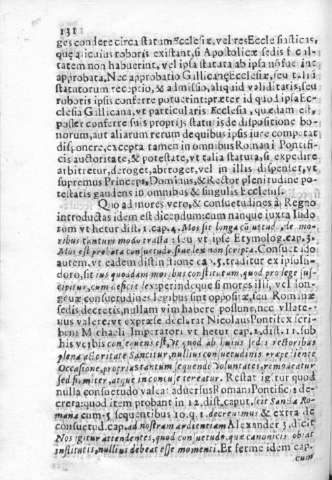 131
ges condere circa statum Ecclesiæ, vel res Ecclesiasticas,
quę alicuius roboris existant, si Apostolicæ sedis facul-
tatem non habuerint, vel ipsa statuta ab ipsa nō fue int
approbata, Nec approbatio Gallicanę Ecclesiæ, seu talia
statutorum receptio, & admissio, aliquid validitatis, seu
roboris ipsis conferre potuerint: præter id quod ipsa Ec-
clesia Gallicana, vt particularis Ecclesia, quædam est,
posset conferre suis proprijs statutis de dispositione bo-
norum, aut aliarum rerum de quibus ipsis iure competat
disponere, excepta tamen in omnibus Romani Pontifi-
cis auctoritate, & potestate, vt talia statuta, si expedire
arbitretur, deroget, abroget, vel in illis dispenset, vt
supremus Princeps, Dominus, & Rector plenitudine po-
testatis gaudens in omnibus & singulis Ecclesijs.
Quo ad mores vero, & consuetudines à Regno
introductas idem est dicendum: cum nanque iuxta Isido
rum vt hetur dist. 1. cap. 4. Mos sit longa cōsuetudo, de mo-
ribus tantum modo tracta: seu vt ipse Etymolog. cap. 3.
Mos est probata consuetudo siue lex non scripta. Consuetudo
autem, vt eadem distinctione ca. 5. traditur ex ipso Isi-
doro, sit ius quoddam moribus constitutum, quod pro lege sus-
cipitur, cum deficit lex: perinde que si mores illi, vel lon-
gęuæ consuetudines legibus sint oppositæ, seu Romanæ
sedis decretis, nullam vim habere possunt, nec vllate-
nus valere, vt expresse declarat Nicolaus Pontifex scri-
bens Michaeli Imperatori vt hetur cap. 2. dist. 11. sub
his verbis conseques est, vt quod ab huius sedis rectoribus
plena auctoritate Sancitur, nullius consuetudinis præpediente
Occasione, proprias tantum sequendo voluntates, remoueatur
sed firmiter, atque inconcusse teneatur. Restat igitur quod
nulla consuetudo valeat aduersus Romani Pontificis de-
creta: quod item probant in 12. dist. caput, scit Sancta Ro-
mana cum 5 sequentibus 10. q. 1. decreuimus & extra de
consuetud. cap. ad nostram ardientiam Alexander 3. dicit
Nos igitur attendentes, quod consuetudo, quæ canonicis obuiat
institutis, nullius debeat esse momenti. Et ferme idem cap.
cum